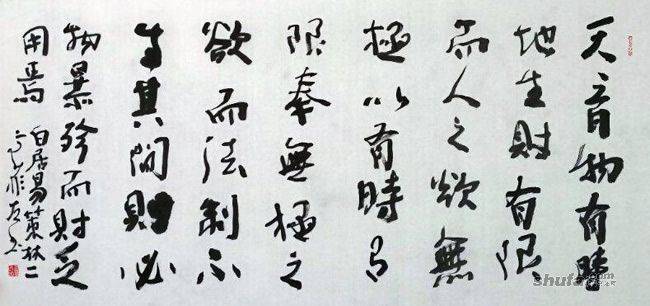 天育物有時
地生財有限
而人之欲無
極以有時有
限奉無極之
欲而法制不
生其間則必
物暴殄而財乏
用焉
白居易策林二